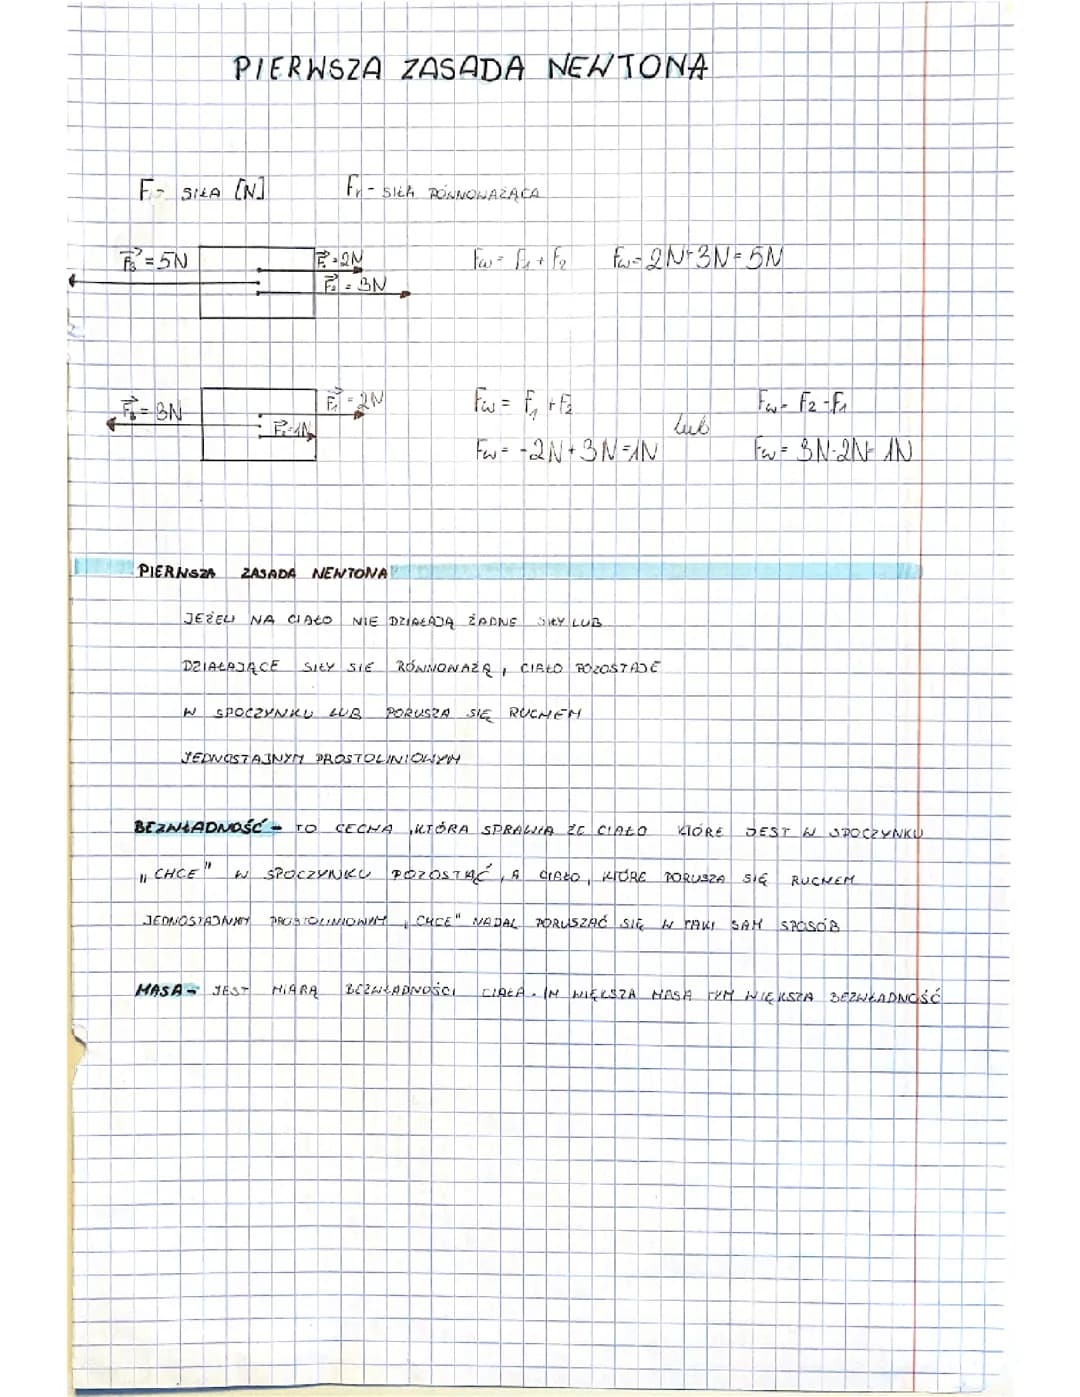 PIERWSZA ZASADA NEWTONA
F - SIŁA [N]
Fr - SIŁA RÓWNOWAŻĄCA
F₃ = 5N
F₁ = 2N
F₂ = 3N
Fw = F₁ + F₂
Fw = 2N + 3N = 5N
= 3N
F₁ = 2N
= 1N
Fw = F₁ + F₂
lub
Fw = F₂ - F₁
Fw = -2N + 3N = 1N
Fw = 3N - 2N = 1N
PIERWSZA ZASADA NEWTONA
JEŻELI NA CIAŁO NIE DZIAŁAJĄ ŻADNE SIŁY LUB
DZIAŁAJĄCE SIŁY SIE RÓWNOWAŻĄ, CIAŁO POZOSTAJE
W SPOCZYNKU LUB PORUSZA SIĘ RUCHEM
JEDNOSTAJNYM PROSTOLINIOWYM
BEZWŁADNOŚĆ - TO CECHA, KTÓRA SPRAWIA ŻE CIAŁO KTÓRE JEST W SPOCZYNKU
"CHCE" W SPOCZYNKU POZOSTAĆ, A CIAŁO, KTÓRE PORUSZA SIĘ RUCHEM
JEDNOSTAJNYM PROSTOLINIOWYM "CHCE" NADAL PORUSZAĆ SIĘ W TAKI SAM SPOSÓB
MASA - JEST MIARĄ BEZWŁADNOŚCI CIAŁA. IM WIĘKSZA MASA TYM WIĘKSZA BEZWŁADNOŚĆ